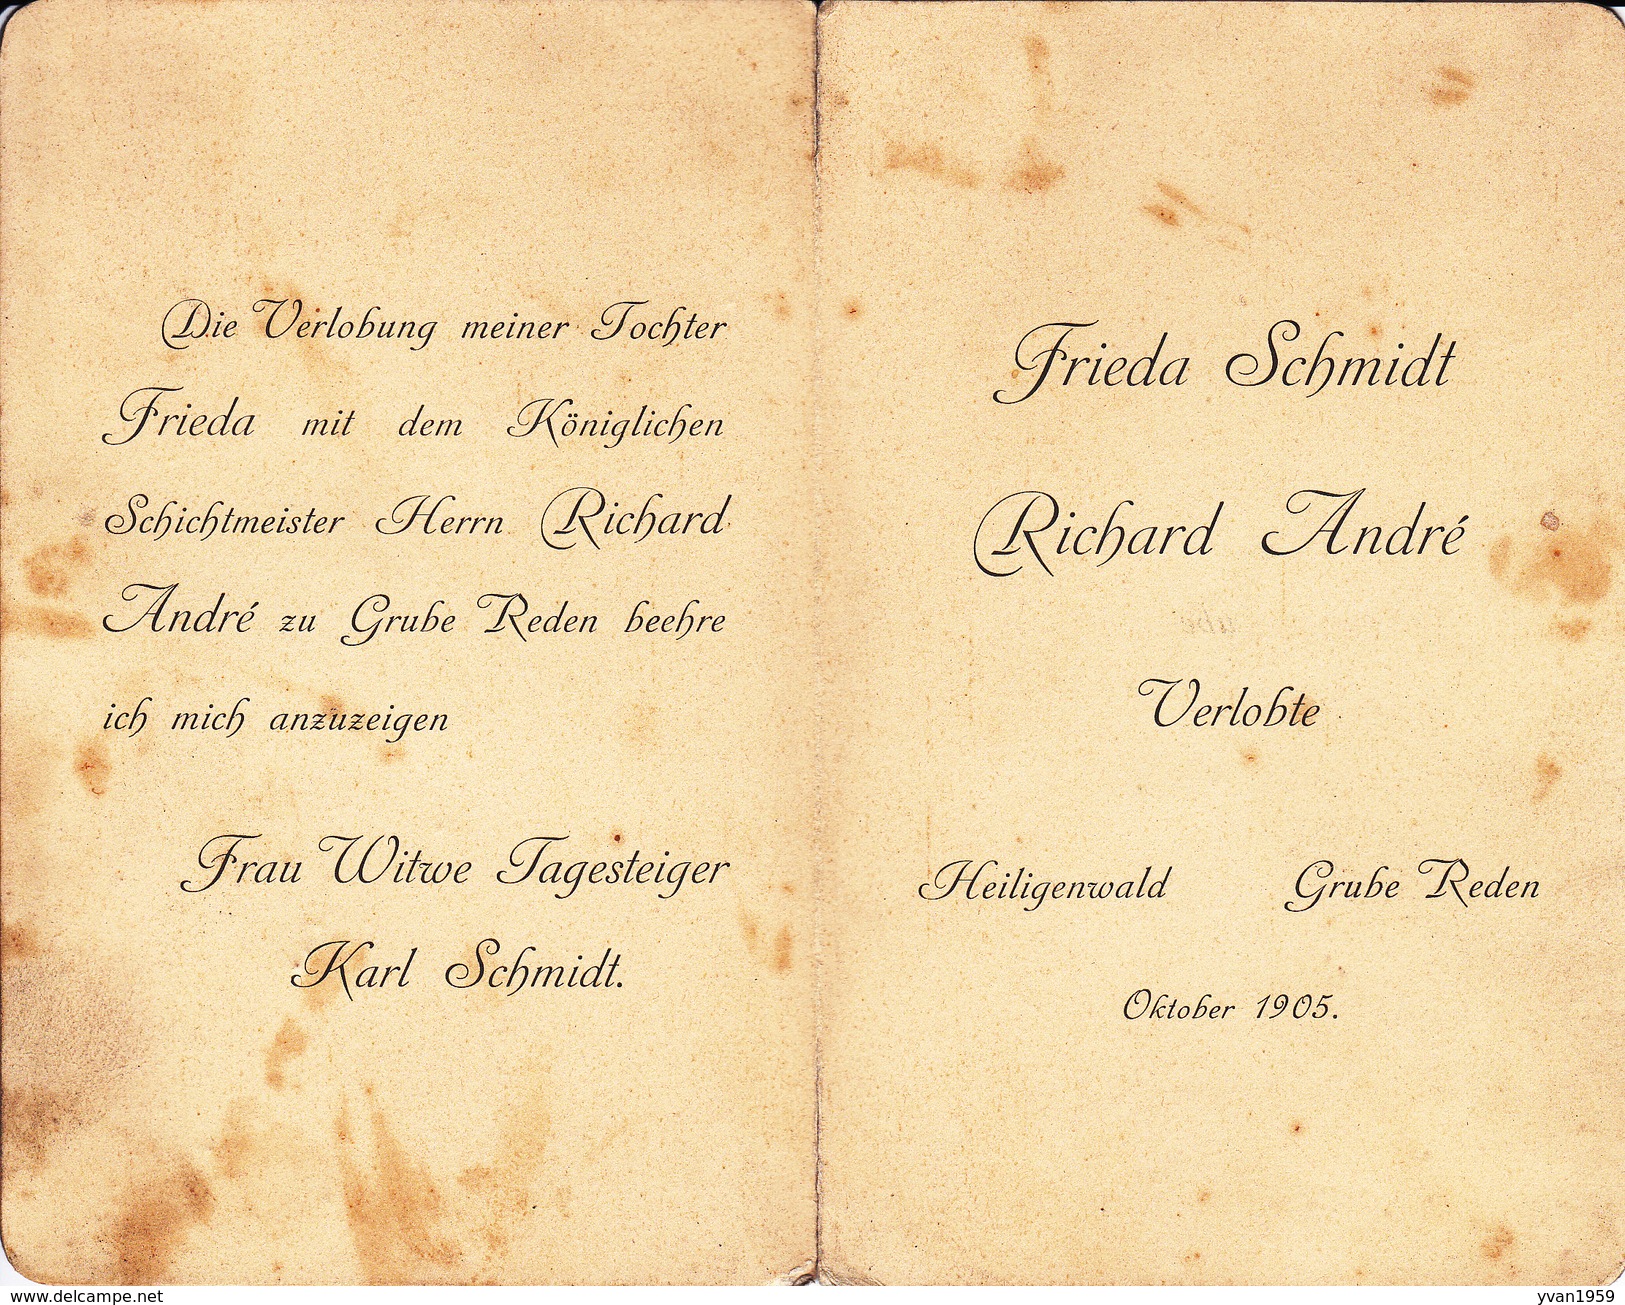 Die Verlobung meiner Tochter
Frieda mit dem Königlichen
Schichtmeister Herrn Richard
André zu Grube Reden beehre
ich mich anzuzeigen
Frau Witwe Tagesteiger
Karl Schmidt.
Frieda Schmidt
Richard André
Verlobte
Heiligenwald Grube Reden
Oktober 1905.
www.delcampe.net
yvan1959